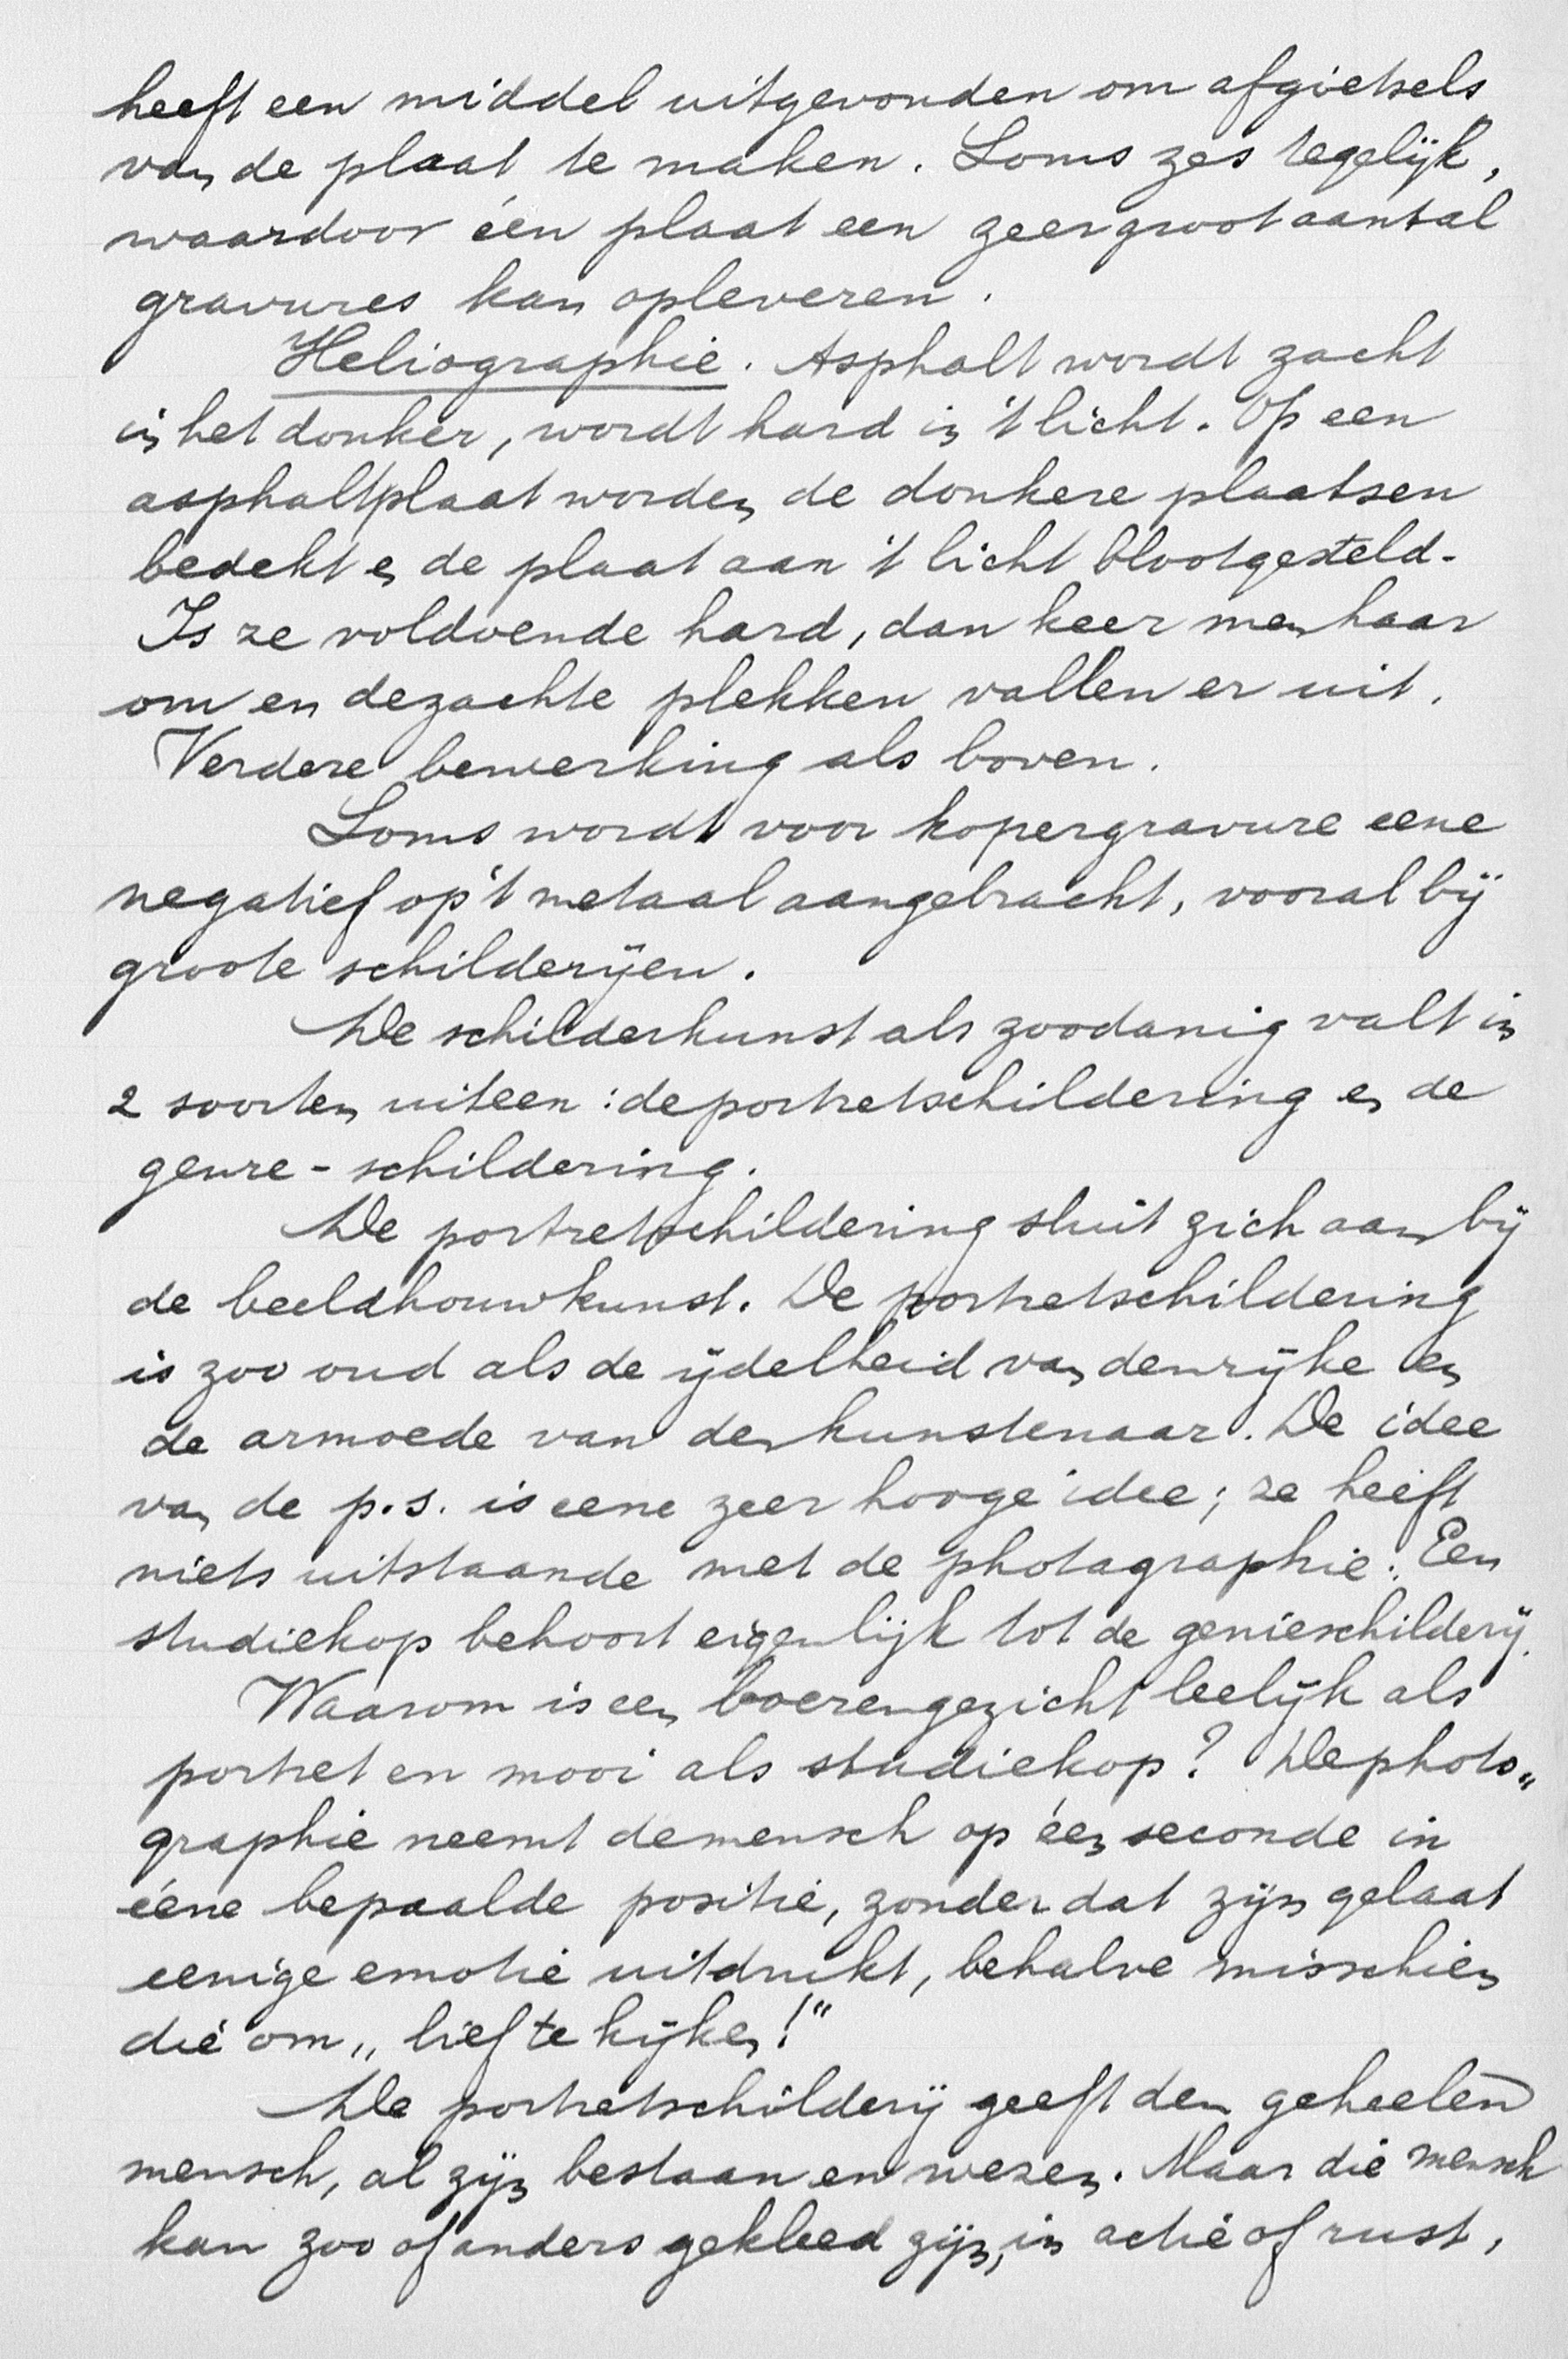 heeft een middel uitgevonden om afgietsels
van de plaat te maken. Soms zes tegelijk,
waardoor één plaat een zeer groot aantal
gravures kan opleveren.
Heliographie. Asphalt wordt zacht
in het donker, wordt hard in 't licht. Op een
asphaltplaat worden de donkere plaatsen
bedekt en de plaat aan 't licht blootgesteld.
Is ze voldoende hard, dan keer men haar
om en de zachte plekken vallen er uit.
Verdere bewerking als boven.
Soms wordt voor kopergravure eene
negatief op 't metaal aangebracht, vooral bij
groote schilderijen.
De schilderkunst als zoodanig valt in
2 soorten uiteen: de portretschildering en de
genre-schildering.
De portretschildering sluit zich aan bij
de beeldhouwkunst. De portretschildering
is zoo oud als de ijdelheid van den rijke en
de armoede van den kunstenaar. De idee
van de p.s. is eene zeer hooge idee; ze heeft
niets uitstaande met de photagraphie. Een
studiekop behoort eigenlijk tot de genieschilderij.
Waarom is een boerengezicht leelijk als
portret en mooi als studiekop? De photo„
graphie neemt de mensch op één seconde in
ééne bepaalde positie, zonder dat zijn gelaat
eenige emotie uitdrukt, behalve misschien
die om „lief te kijken!"
De portretschilderij geeft den geheelen
mensch, al zijn bestaan en wezen. Maar die mensch
kan zoo of anders gekleed zijn, in actie of rust,